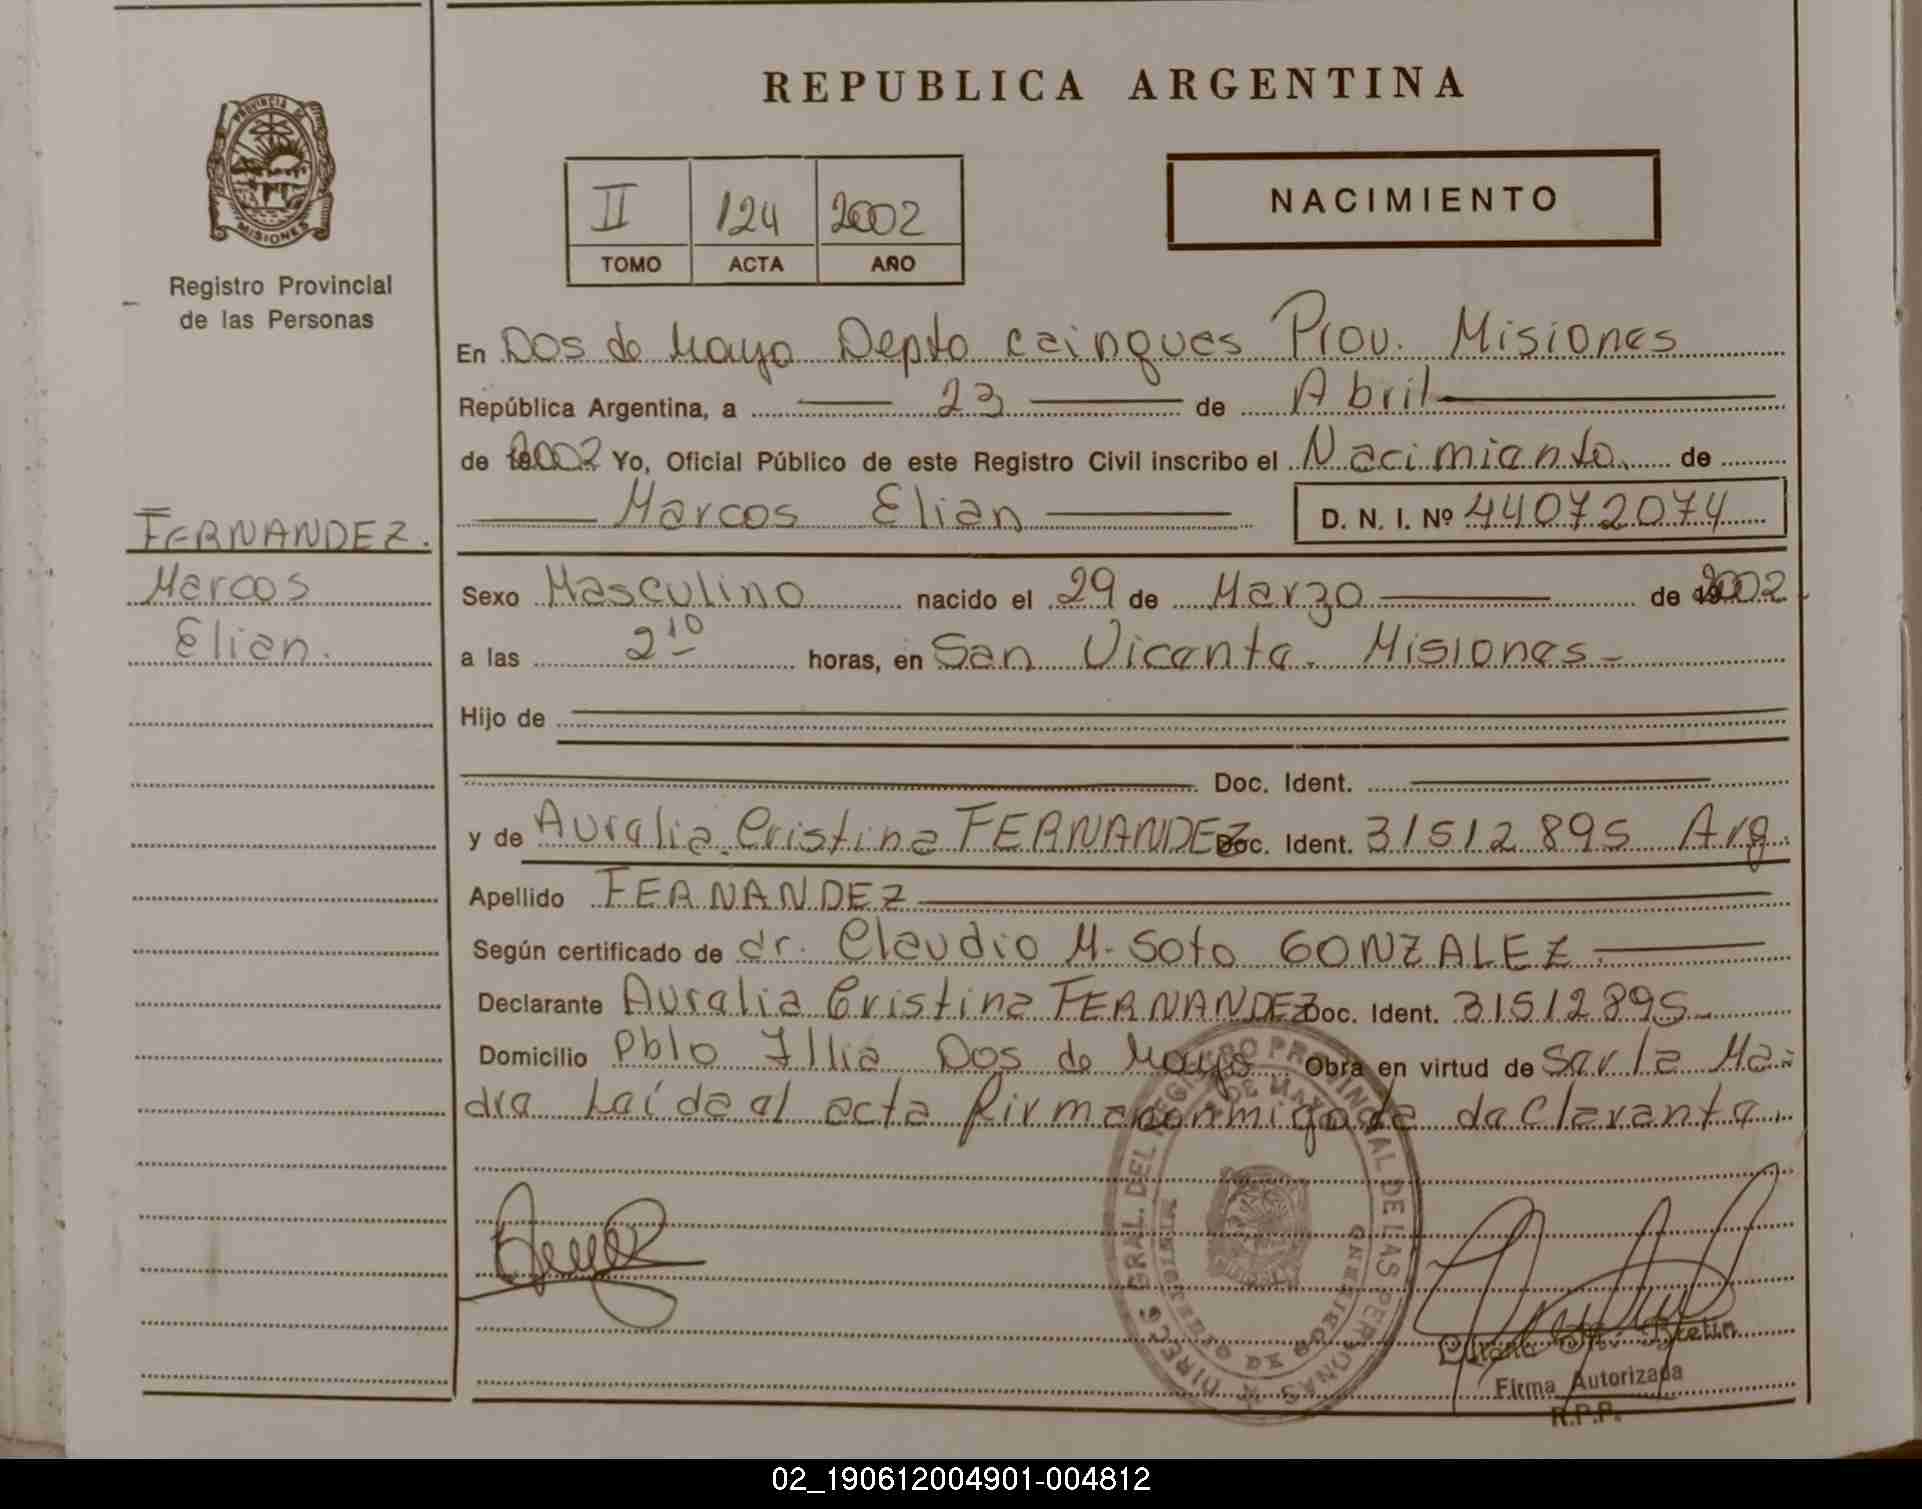 REPUBLICA ARGENTINA
PROVINCIA DE
MISIONES
Registro Provincial
de las Personas
II 124 2002
TOMO ACTA AÑO
NACIMIENTO
En Dos de Mayo Depto Cainguas Prov. Misiones
República Argentina, a 23 de Abril
de 2002 Yo, Oficial Público de este Registro Civil inscribo el Nacimiento de
Marcos Elian D. N. I. Nº 44072074
FERNANDEZ.
Marcos
Elian.
Sexo Masculino nacido el 29 de Marzo de 2002
a las 2 10 horas, en San Vicente. Misiones-
Hijo de
Doc. Ident.
y de Aurelia Cristina FERNANDEZ Doc. Ident. 31512895 Arg.
Apellido FERNANDEZ
Según certificado de dr. Claudio M. Soto GONZALEZ
Declarante Aurelia Cristina FERNANDEZ Doc. Ident. 31512895
Domicilio Pblo Illia Dos de Mayo Obra en virtud de Ser la Ma-
dre Leída el acta firma conmigo la declarante.
DIREC. GRAL. DEL REGISTRO PROVINCIAL DE LAS PERSONAS
DE MAYO
DE GOBIERNO
Firma Autorizada
R.P.P.
02_190612004901-004812